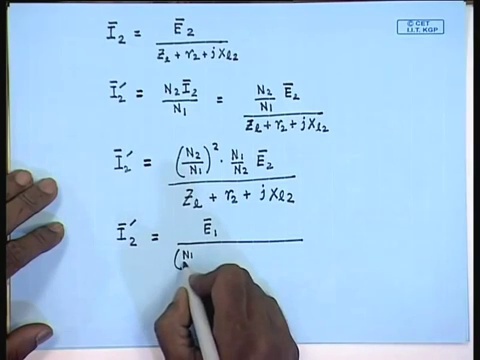 © CET
I.I.T. KGP
Ī₂ = Ē₂ / (Z_l + r₂ + j x_l2)
Ī₂′ = N₂Ī₂ / N₁ = (N₂/N₁) Ē₂ / (Z_l + r₂ + j x_l2)
Ī₂′ = (N₂/N₁)² · (N₁/N₂) Ē₂ / (Z_l + r₂ + j x_l2)
Ī₂′ = Ē₁ / (N₁